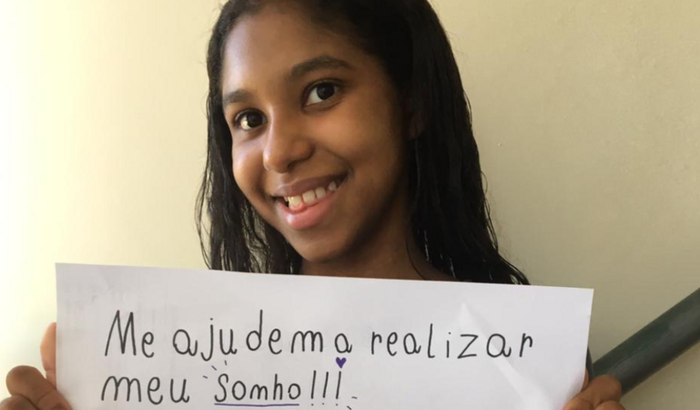 Me ajudem a realizar
meu Somho!!!